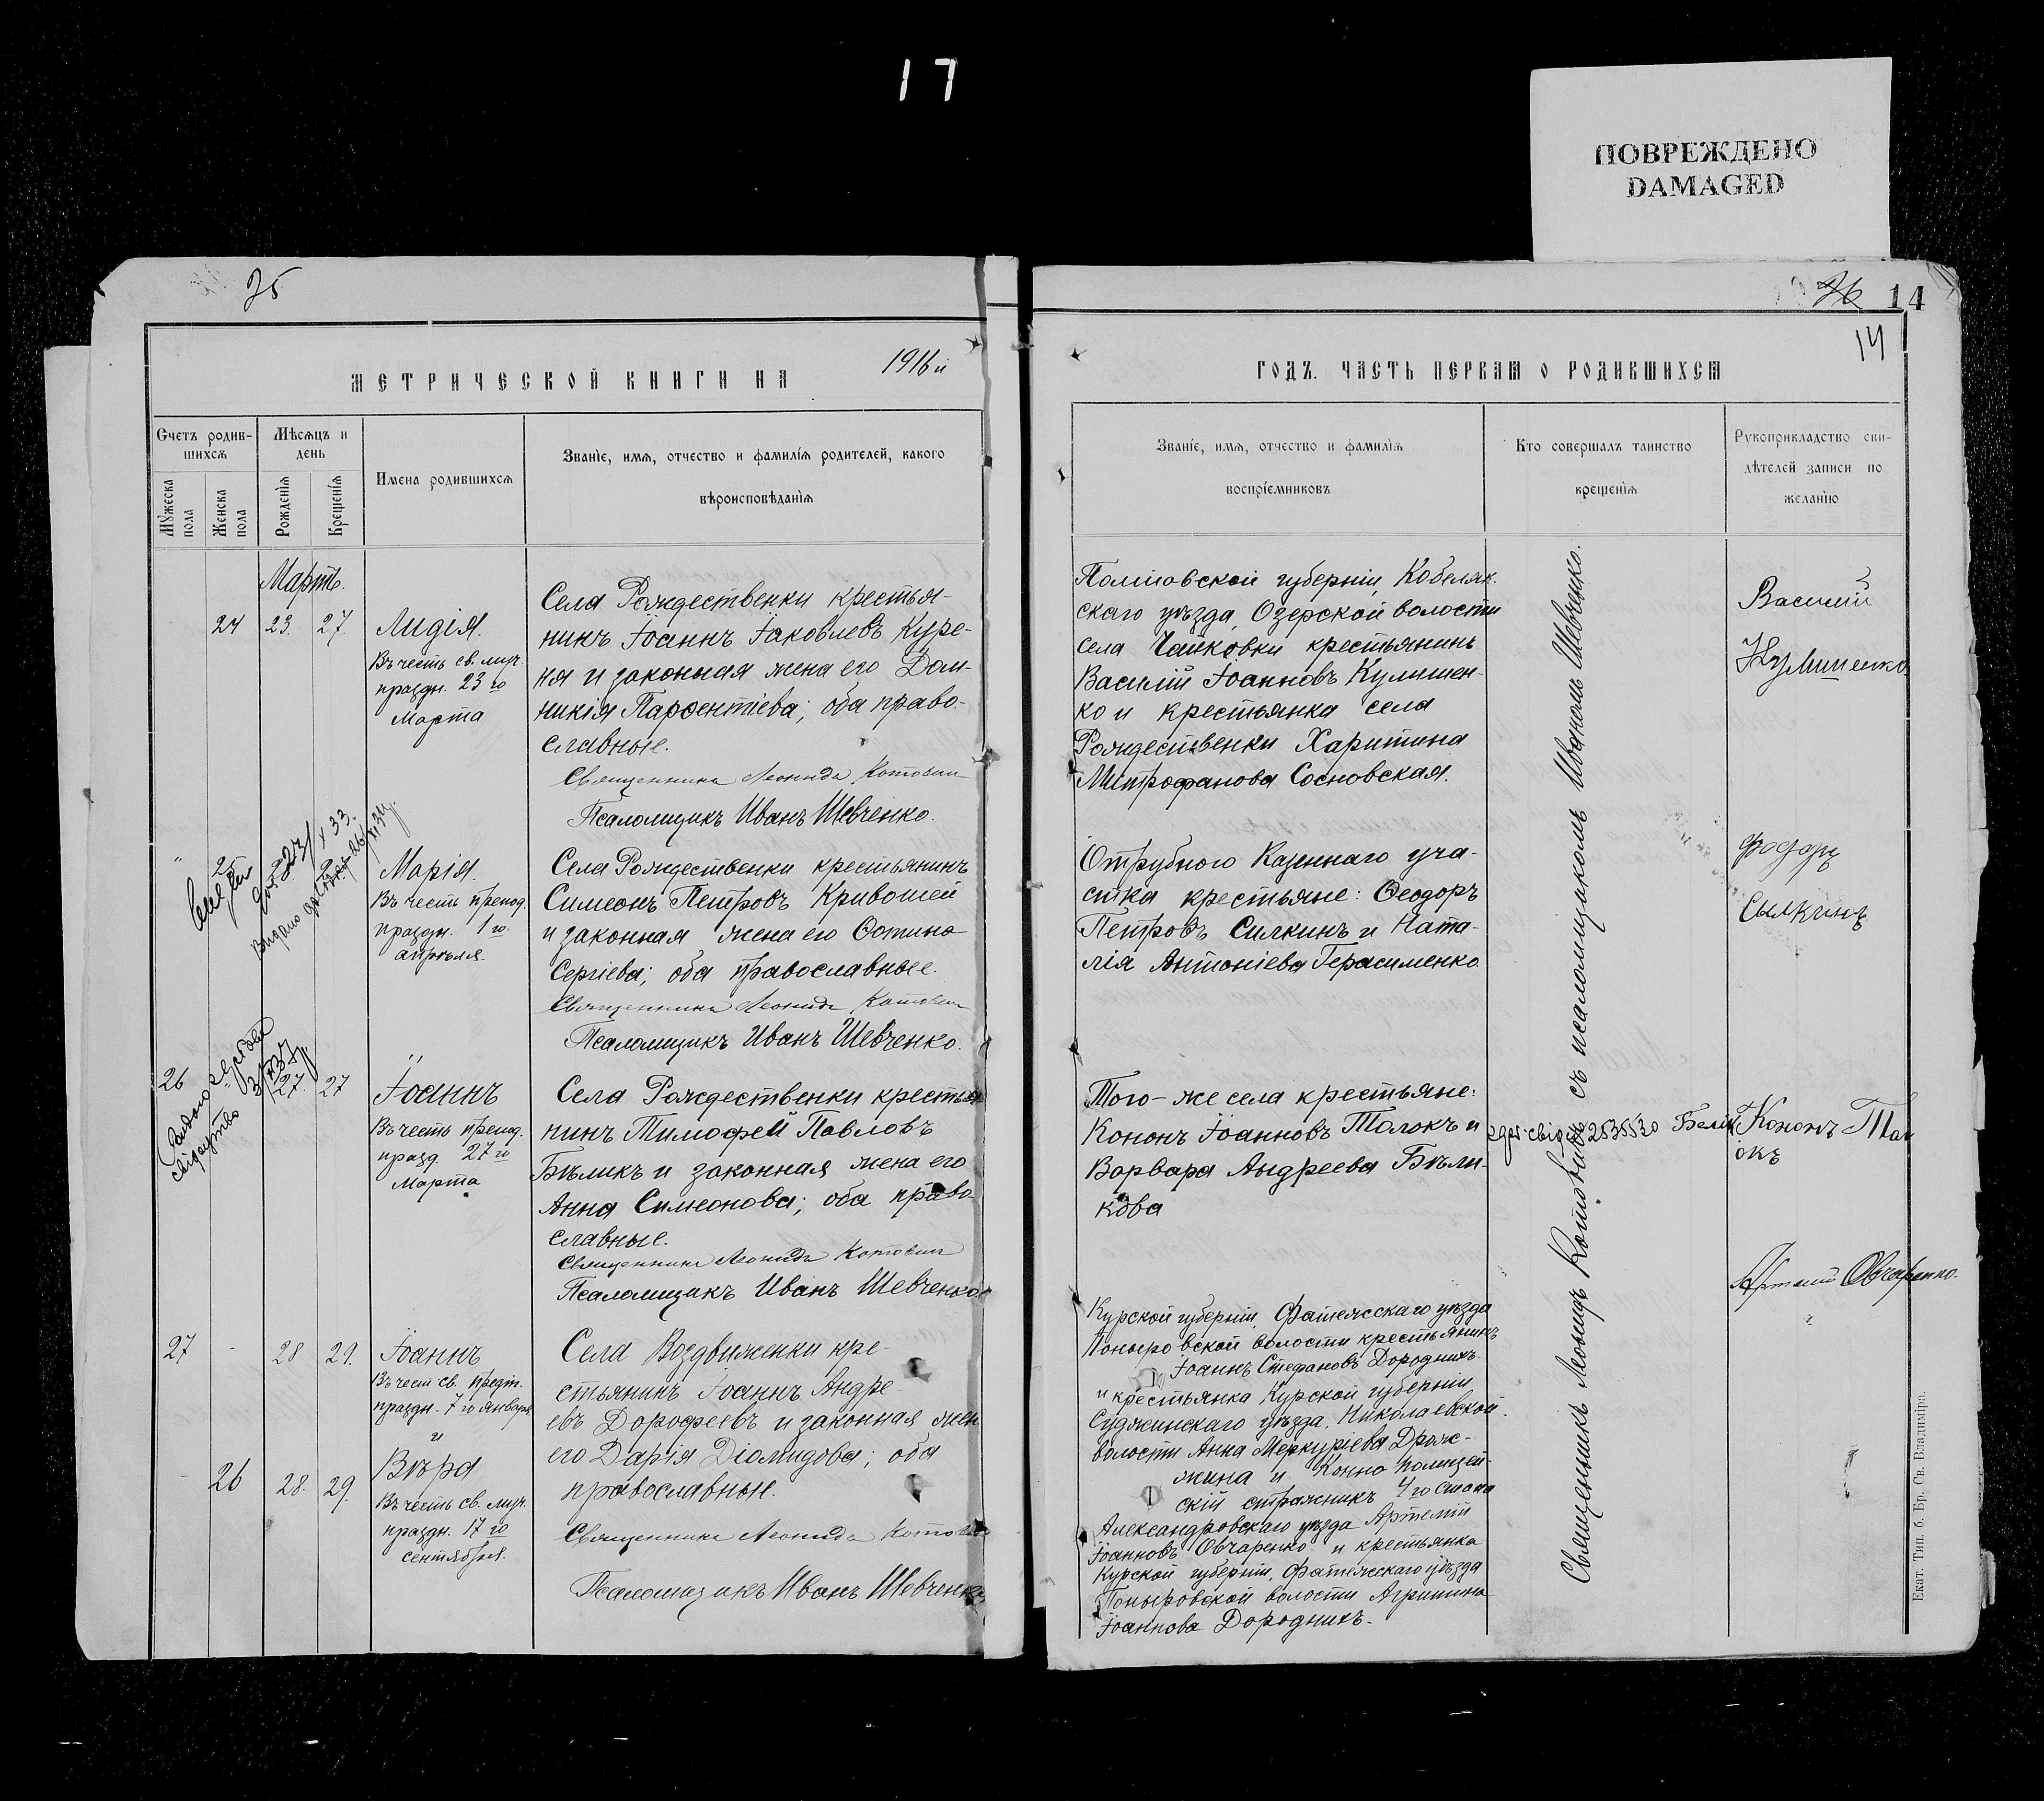 17
ПОВРЕЖДЕНО
DAMAGED
25
МЕТРИЧЕСКОЙ КНИГИ НА 1916й
Счетъ родив-
шихся
Мѣсяцъ и
день
Имена родившихся
Званіе, имя, отчество и фамилія родителей, какого
вѣроисповѣданія
Мужеска
пола
Женска
пола
Рожденія
Крещенія
Мартъ.
24 23. 27.
Лидія.
Въ честь св. муч.
праздн. 23 го
Марта
Села Рождественки крестья-
нинъ Іоаннъ Іаковлевъ Куре-
ня и законная жена его Дом-
никія Парѳентіева; оба право-
славные.
Священникъ Леонидъ Котович
Псаломщикъ Иванъ Шевченко.
25
Марія.
Въ честь препод.
праздн. 1 го
апрѣля.
Села Рождественки крестьянинъ
Симеонъ Петровъ Кривошей
и законная жена его Фотина
Сергіева; оба православные.
Священникъ Леонидъ Котович
Псаломщикъ Иванъ Шевченко.
26 27. 27
Іоаннъ
Въ честь препод.
празд. 27 го
Марта
Села Рождественки крестья
нинъ Тимофей Павловъ
Бѣликъ и законная жена его
Анна Симеонова; оба право
славные.
Священникъ Леонидъ Котович
Псаломщикъ Иванъ Шевченко
27 - 28 29.
Іоаннъ
Въ чест св. предт.
праздн. 7 го Января,
и
26 28. 29.
Вѣра
Въ честь св. муч.
праздн. 17 го
сентября.
Села Воздвиженки кре-
стьянинъ Іоаннъ Андре-
евъ Дорофеевъ и законная жен
его Дарія Діомидова; оба
православные.
Священникъ Леонидъ Котович
Псаломщикъ Иванъ Шевченко
26 14
14
ГОДЪ. ЧАСТЬ ПЕРВАЯ О РОДИВШИХСЯ
Званіе, имя, отчество и фамилія
воспріемниковъ
Кто совершалъ таинство
крещенія
Рукоприкладство сви-
дѣтелей записи по
желанію
Полтавской губерніи, Кобеляк-
скаго уѣзда, Озерской волости
села Чапковки крестьянинъ
Василій Іоанновъ Кулишен-
ко и крестьянка села
Рождественки Харитина
Митрофанова Сосновская.
Василий
Кулишенко
Отрубного Казеннаго уча-
стка крестьяне: Ѳеодоръ
Петровъ Силкинъ и Ната-
лія Антоніева Герасименко.
Фодоръ
Сылкинъ
Того-же села крестьяне:
Кононъ Іоанновъ Толокъ и
Варвара Андреева Бѣли-
кова
Кононъ Тол
окъ
Курской губерніи, Фатежскаго уѣзда
Поныровской волости крестьянинъ
Іоаннъ Стефановъ Дородныхъ
и крестьянка Курской губерніи
Суджинскаго уѣзда, Николаевской
волости Анна Меркуріева Дрож-
жина и Конно полицей-
скій стражникъ 4 го стана
Александровскаго уѣзда Артемій
Іоанновъ Овчаренко и крестьянка
Курской губерніи, Фатежскаго уѣзда
Поныровской волости Агрипина
Іоаннова Дородныхъ.
Артемий Овчаренко.
Священникъ Леонидъ Котовичъ съ псаломщикомъ Иваномъ Шевченко.
Екат. Тип. б. Бр. Св. Владиміра.